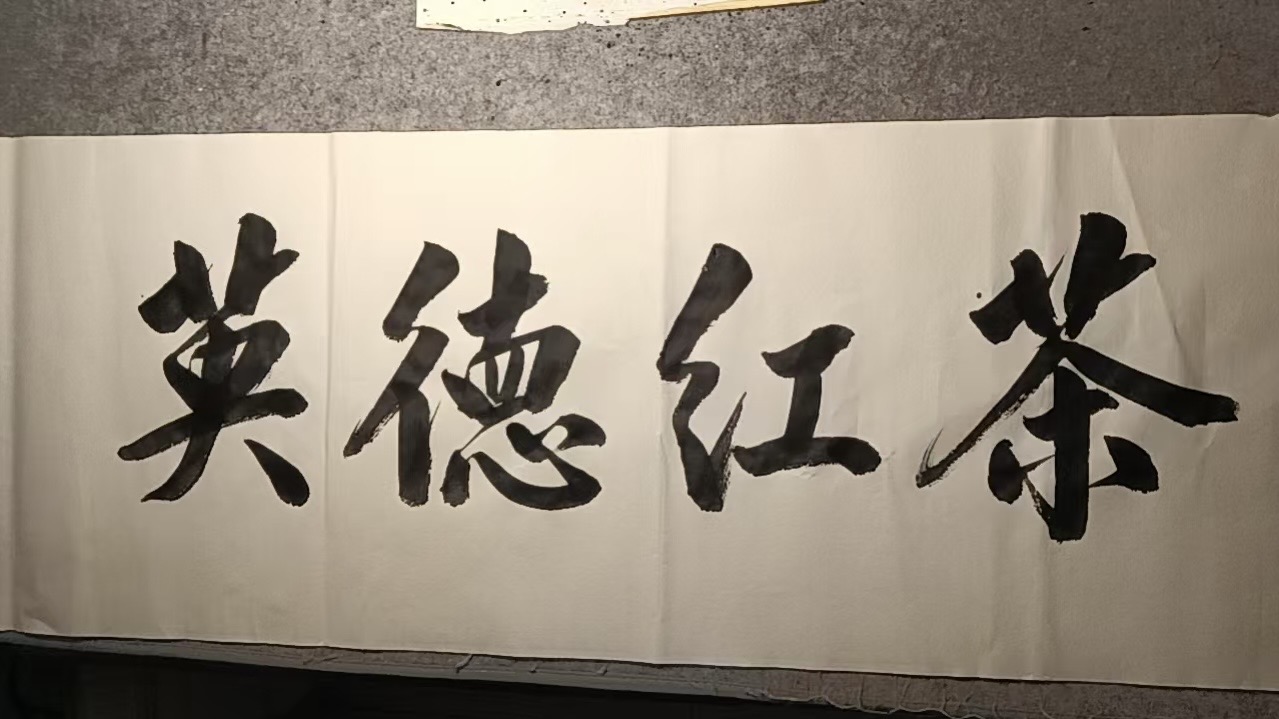 英德红茶